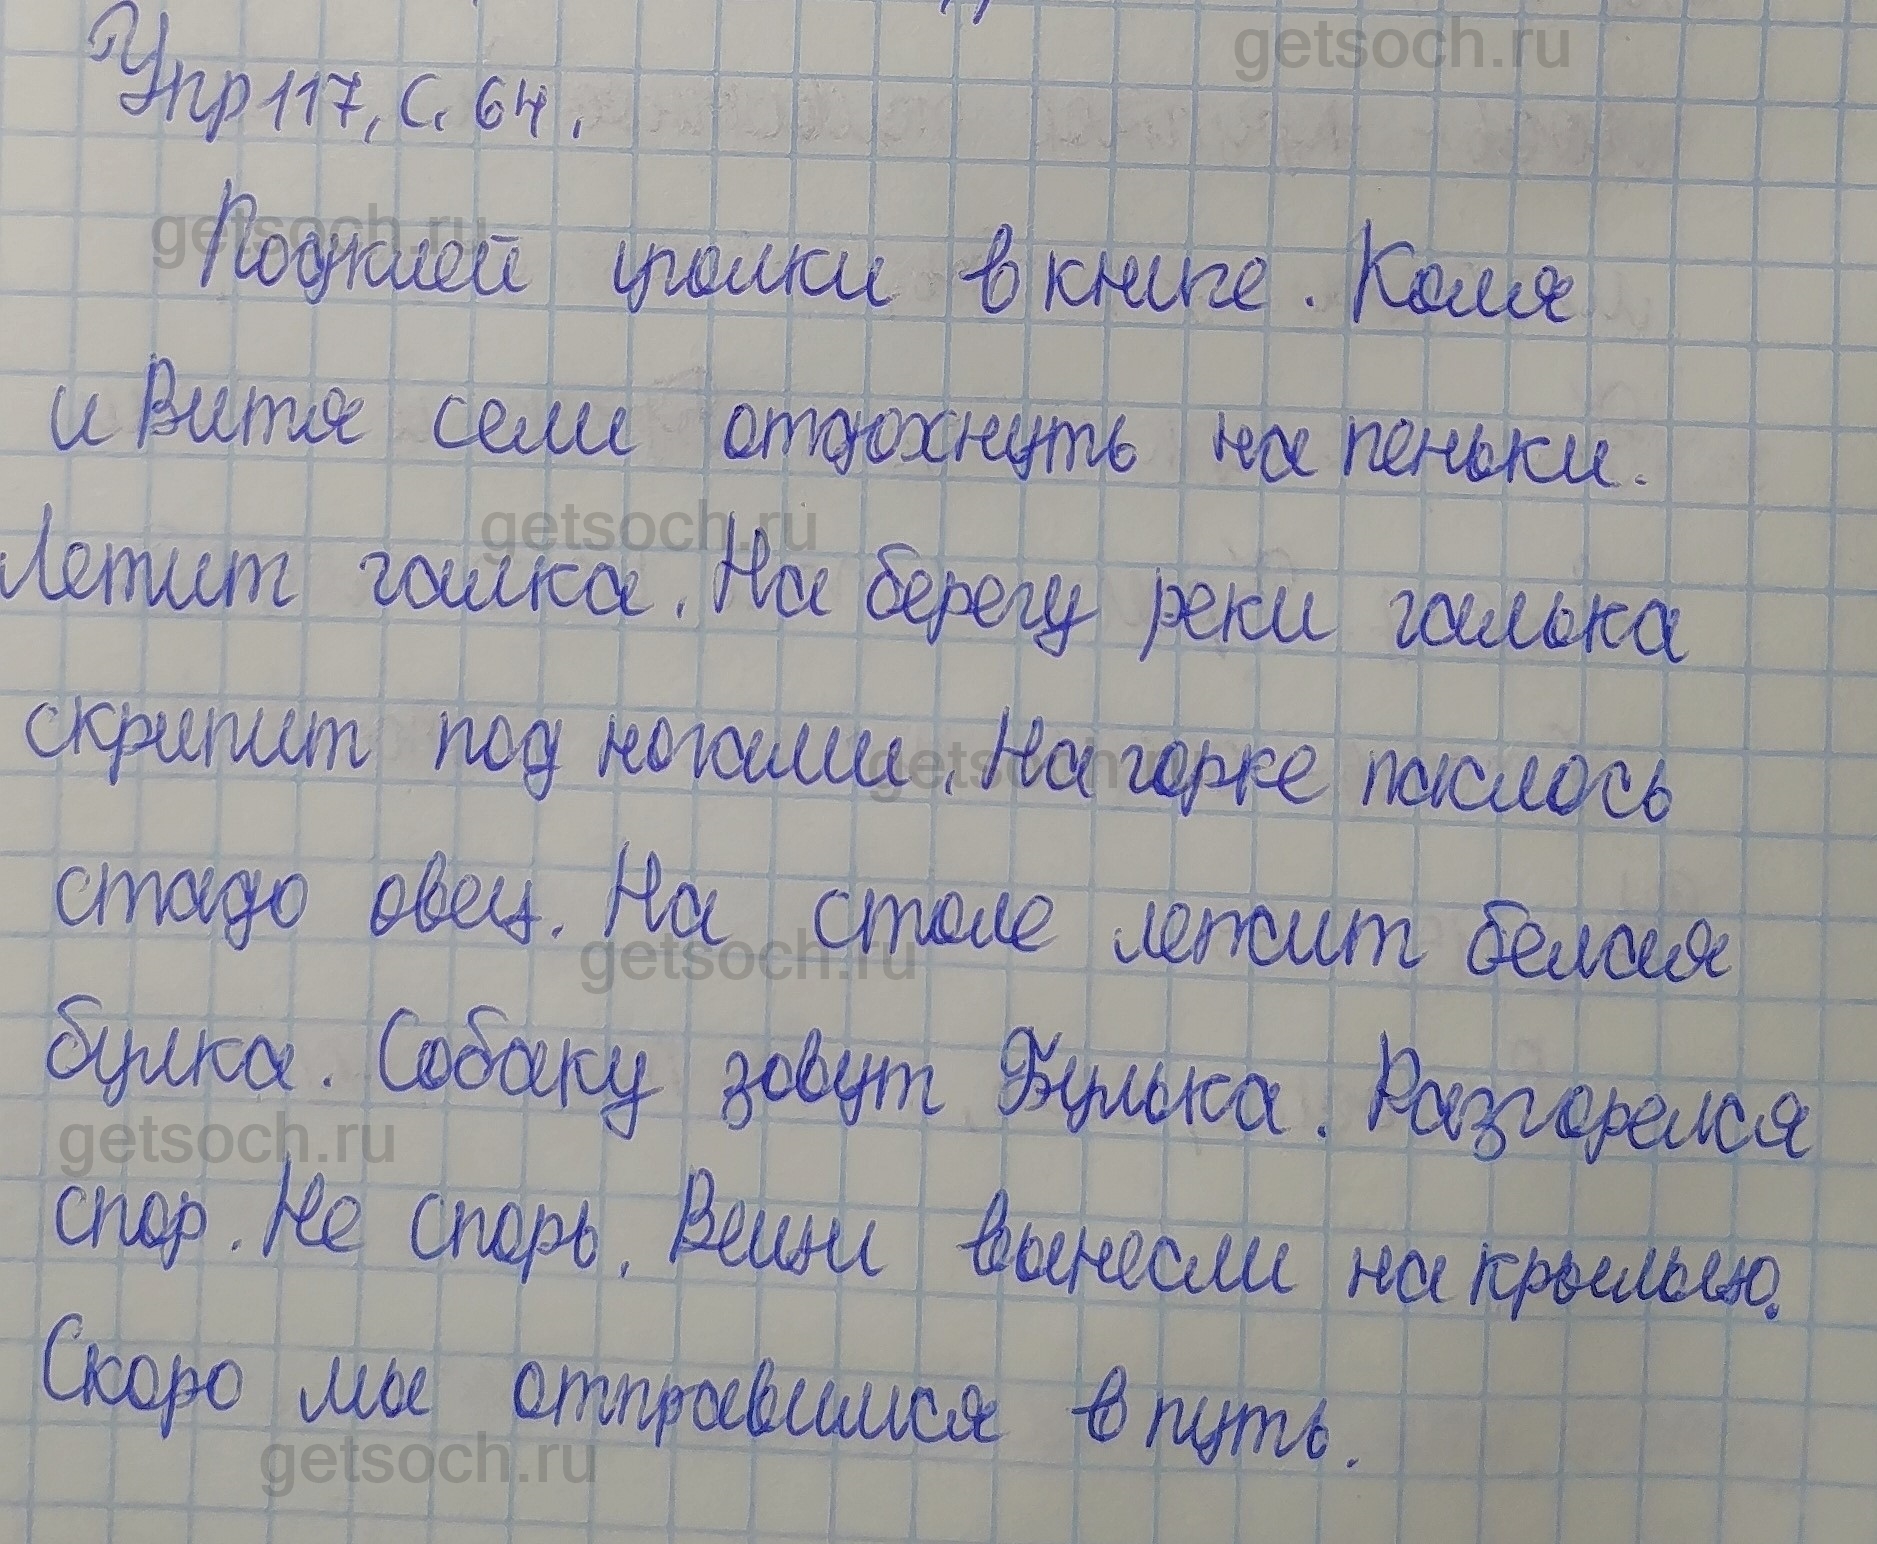 getsoch.ru
Упр 117, с. 64.
getsoch.ru
Подклей уголки в книге. Коля
и Витя сели отдохнуть на пеньки.
getsoch.ru
Летит галка. На берегу реки галька
скрипит под ногами. На горке паслось
getsoch.ru
стадо овец. На столе лежит белая
getsoch.ru
булка. Собаку зовут Булька. Разгорелся
getsoch.ru
спор. Не спорь. Вещи вынесли на крыльцо.
Скоро мы отправимся в путь.
getsoch.ru